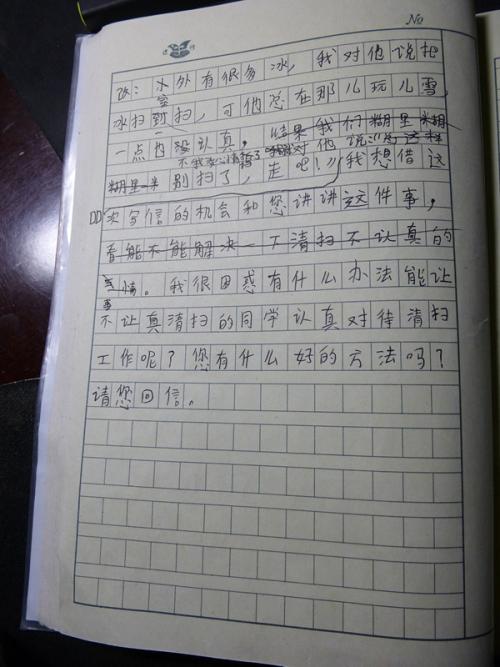 No
改：水外有很多冰，我对他说把
室
冰扫到扫，可他总在那儿玩儿雪，
一点也没认真，结果我们糊里糊
不我来清扫了我对他说
糊里米别扫了，走吧！"我想借这
次写信的机会和您讲讲这件事，
看能不能解决一下清扫不认真的
事情。我很困惑有什么办法能让
不让真清扫的同学认真对待清扫
工作呢？您有什么好的方法吗？
请您回信。